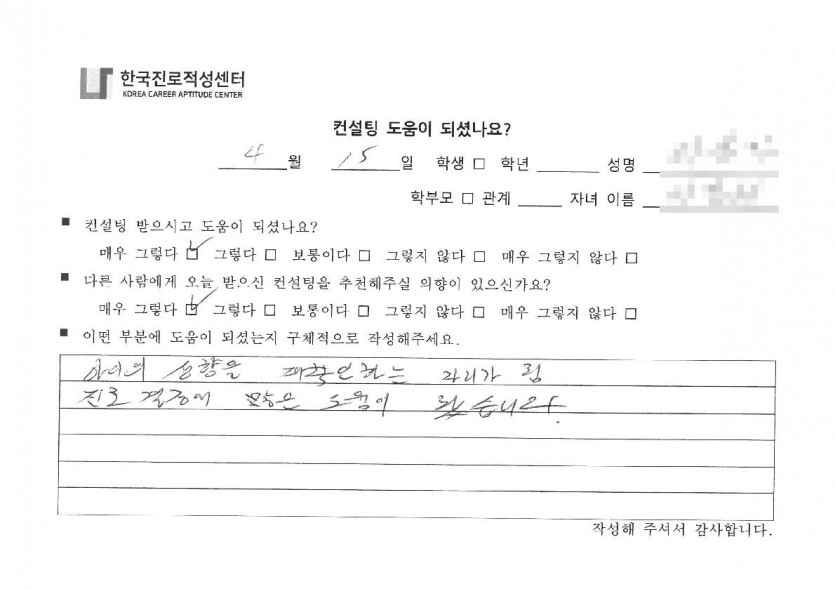 한국진로적성센터
KOREA CAREER APTITUDE CENTER
컨설팅 도움이 되셨나요?
4 월 15 일 학생 □ 학년 성명
학부모 □ 관계 자녀 이름
■ 컨설팅 받으시고 도움이 되셨나요?
매우 그렇다 ☑ 그렇다 □ 보통이다 □ 그렇지 않다 □ 매우 그렇지 않다 □
■ 다른 사람에게 오늘 받으신 컨설팅을 추천해주실 의향이 있으신가요?
매우 그렇다 ☑ 그렇다 □ 보통이다 □ 그렇지 않다 □ 매우 그렇지 않다 □
■ 어떤 부분에 도움이 되셨는지 구체적으로 작성해주세요.
아이의 성향을 재확인하는 자리가 됨
진로 결정에 많은 도움이 됐습니다.
작성해 주셔서 감사합니다.